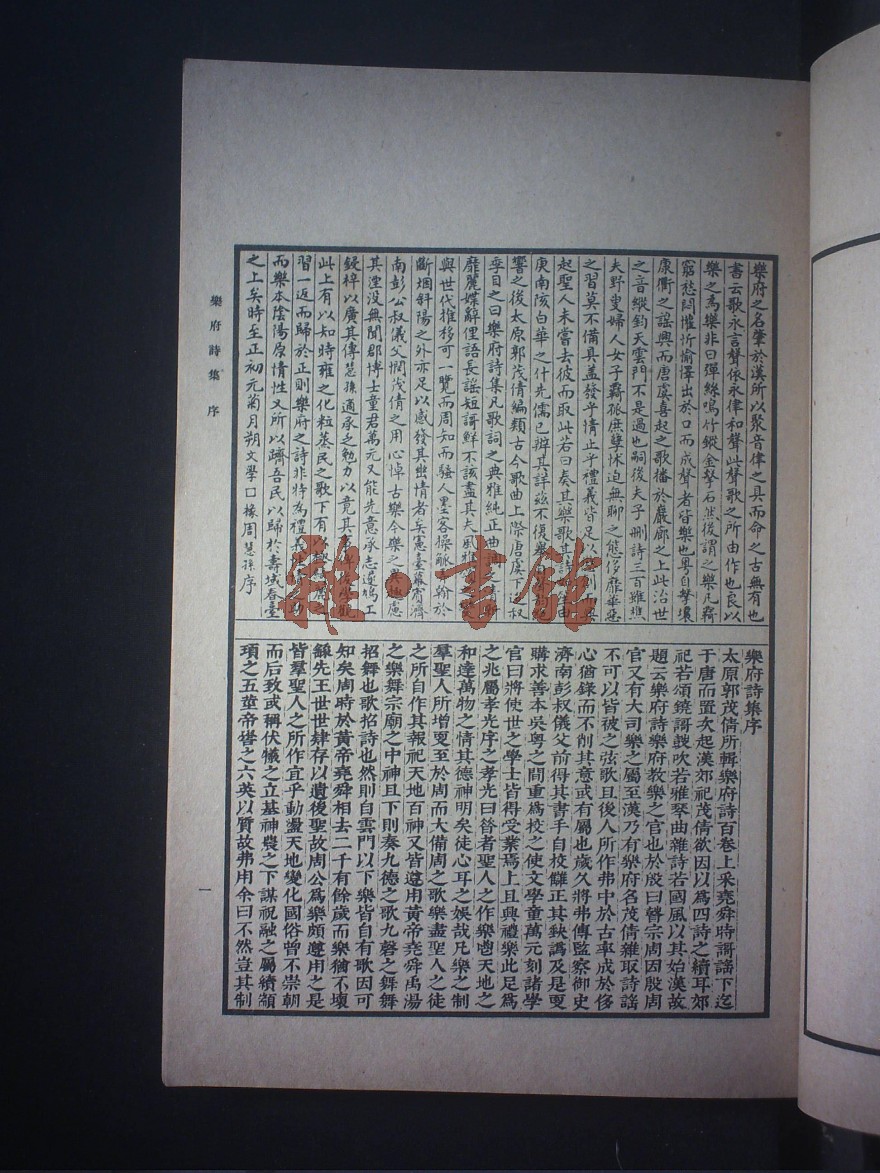 樂府之名肇於漢所以聚音律之具而命之古無有也
書云歌永言聲依永律和聲此聲歌之所由作也良以
樂之為樂非曰彈絲鳴竹鏦金擊石然後謂之樂凡羇
窮愁悶懽忻愉懌出於口而成聲者皆樂也粵自擊壤
康衢之謠興而唐虞喜起之歌播於巖廊之上此治世
之音縱鈞天雲門不是過也嗣後夫子刪詩三百雖樵
夫野叟婦人女子羇孤庶孽怵迫無聊之態侈靡華
之習莫不備具盖發乎情止乎禮義皆足以
起聖人未嘗去彼而取此若曰奏其樂歌其詩
庚南陔白華之什先儒已辨其詳茲不復
響之後太原郭茂倩編類古今歌曲上際唐虞下迄
季目之曰樂府詩集凡歌詞之典雅純正曲調之
靡麗媟辭俚語長謠短謌鮮不該盡其夫風雅
與世代推移可一覽而周知而騷人墨客操觚翰於
斷烟斜陽之外亦足以感發其幽情者矣憲臺濟
南彭公叔儀父憫茂倩之用心悼古樂今樂之異慮
其湮没無聞郡博士童君萬元又能先意承志遑鳩工
鋟梓以廣其傳慧孫適承乏勉力以竟其
此上有以知時雍之化粒蒸民之歌下有以
習一返而歸於正則樂府之詩非特為禮義
而樂本陰陽原情性又所以躋吾民以歸於壽域春臺
之上矣時至正初元菊月朔文學口掾周慧孫序
樂府詩集序
太原郭茂倩所輯樂府詩百卷上采堯舜時謌謠下迄
于唐而置次起漢郊祀茂倩欲因以爲四詩之續耳郊
祀若頌鐃謌鼓吹若雅琴曲雜詩若國風以其始漢故
題云樂府詩樂府教樂之官也於殷曰瞽宗周因殷周
官又有大司樂之屬至漢乃有樂府名茂倩雜取詩謠
不可以皆被之弦歌且後人所作弗中於古率成於侈
心猶錄而不削其意或有屬也歲久將弗傳監察御史
濟南彭叔儀父前得其書手自校讎正其缺譌及是更
購求善本吳粤之間重爲校之使文學童萬元刻諸學
官曰將使世之學士皆得受業焉上且興禮樂此足爲
之兆屬孝光序之孝光曰昝者聖人之作樂也天地之
和達萬物之情其德神明矣徒心耳之娛哉凡樂之制
羣聖人所增更至於周而大備周之歌樂盡聖人之徒
之所自作其報祀天地百神又皆遵用黃帝堯舜禹湯
之樂舞宗廟之中神且下則奏九德之歌九磬之舞舞
招舞也歌招詩也然則自雲門以下樂皆自有歌因可
知矣周時於黃帝堯舜相去二千有餘歲而樂猶不壞
繇先王世世肄存以遺後聖故周公爲樂頗遵用之是
皆羣聖人之所作宜乎動盪天地變化國俗曾不崇朝
而后致或稱伏犧之立基神農之下謀祝融之屬續顓
頊之五莖帝嚳之六英以質故弗用余曰不然豈其制
樂府詩集 序
一
雜·書館